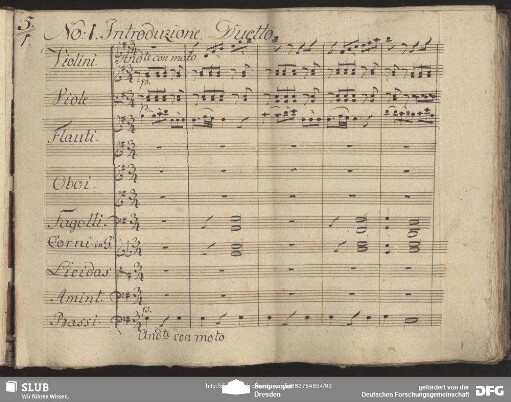 5.
No: 1. Introduzione. Duetto.
Violini
And.te con moto
po.
Viole
Flauti.
Oboi.
Fagotti.
Corni in G.
Licidas
Amint.
Bassi.
po.
And.te con moto
SLUB
Wir führen Wissen.
Semperoper
Dresden
gefördert von der
Deutschen Forschungsgemeinschaft
DFG